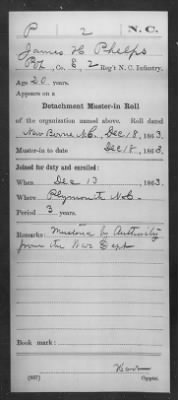 P 2 N.C.
James H Phelps
Pvt, Co. E, 2 Reg't N.C. Infantry.
Age 20 years.
Appears on a
Detachment Muster-in Roll
of the organization named above. Roll dated
New Berne N.C., Dec 18, 1863.
Muster-in to date Dec 18, 1863.
Joined for duty and enrolled:
When Dec 13, 1863.
Where Plymouth N.C.
Period 3 years.
Remarks: Mustered by Authority
from the War Dept
Book mark:
(337) Copyist.